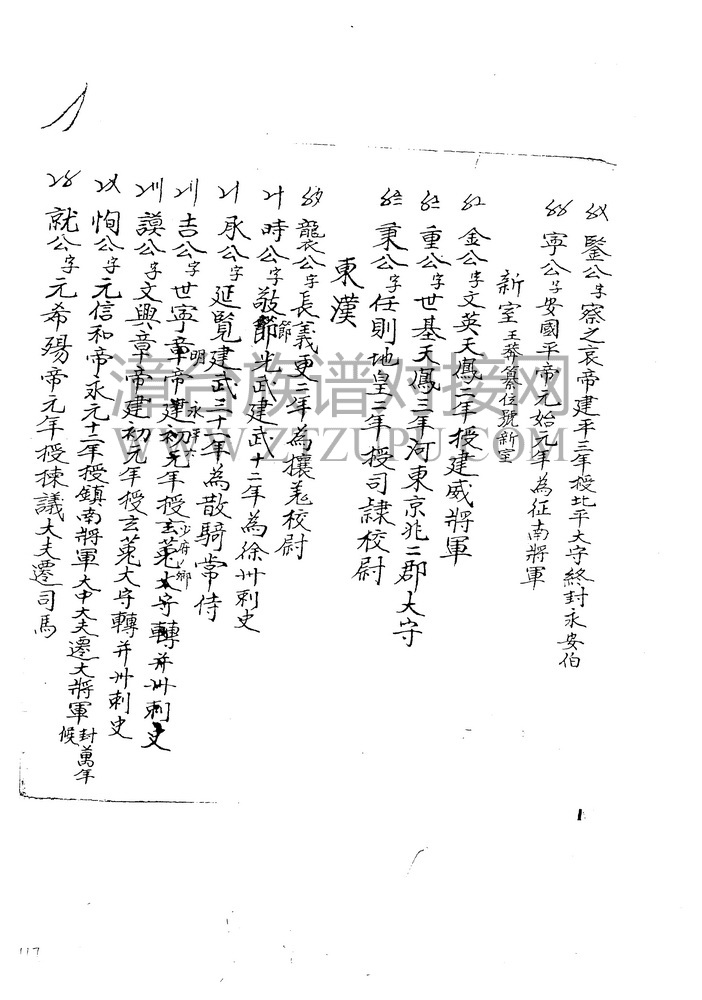 鑒公字察之哀帝建平三年授北平大守終封永安伯
寧公字安國平帝元始元年為征南將軍
新室王莽篡位號新室
金公字文英天鳳二年授建威將軍
重公字世基天鳳三年河東京兆二郡大守
秉公字任則地皇二年授司隸校尉
東漢
龔公字長義更二年為攘羗校尉
時公字敬節光武建武十二年為徐州刺史
節
承公字延覧建武三十一年為散騎常侍
吉公字世寧章帝建初元年授玄莵太守轉并州刺史
明 永平 少府 鄉
謨公字文興章帝建初元年授玄莵大守轉并州刺史
恂公字元信和帝永元十二年授鎮南將軍大中大夫遷大將軍封萬年候
就公字元希殤帝元年授揀議大夫遷司馬
漳台族谱对接网
WWW.ZTZUPU.COM
117